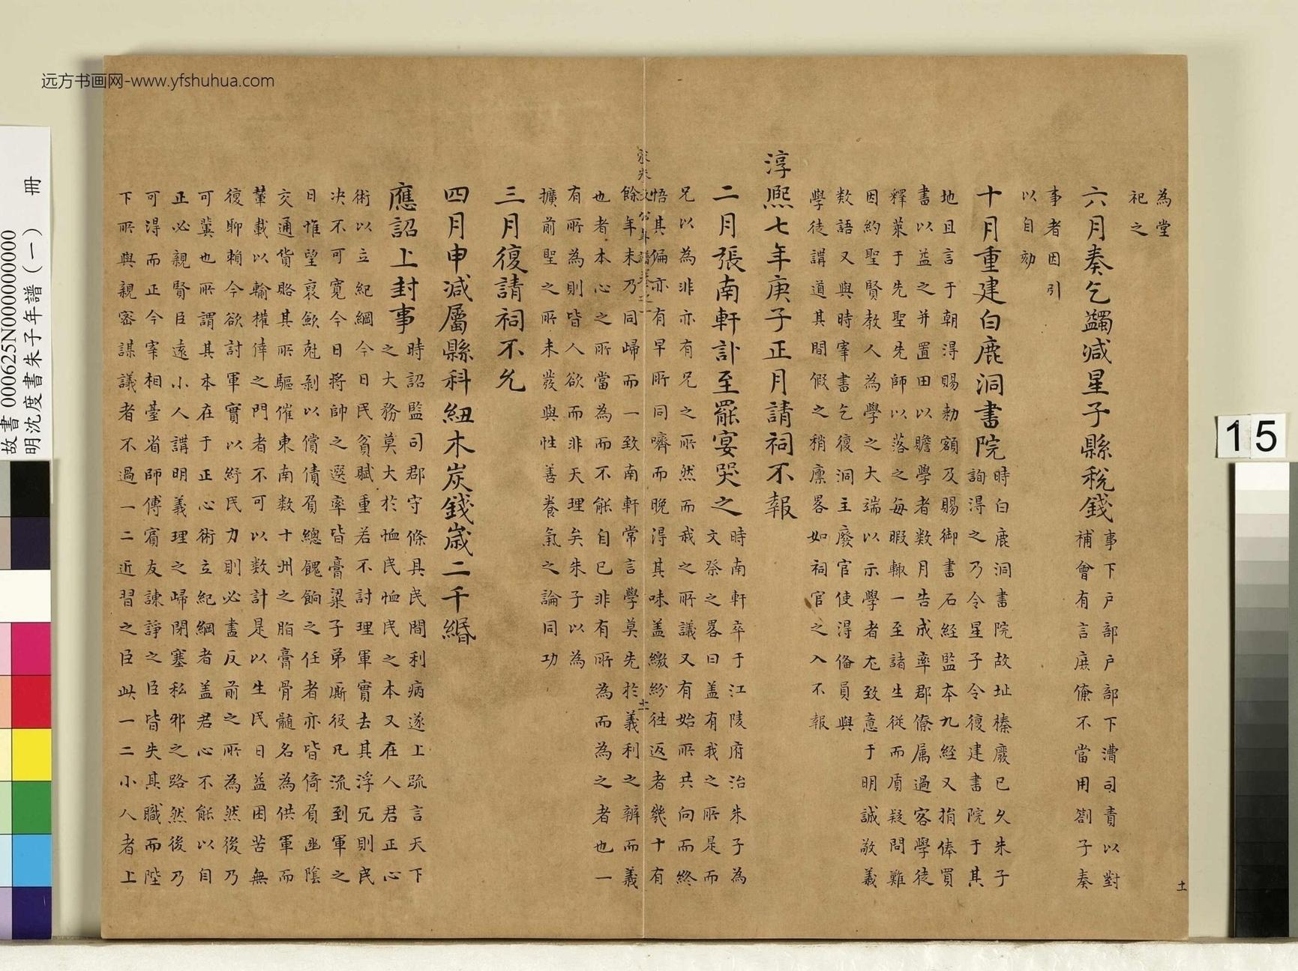 为堂
祀之
六月奏乞蠲減星子縣稅錢事下戶部戶部下漕司責以對
補會有言庶僚不當用劄子奏
事者因引
以自劾
十月重建白鹿洞書院時白鹿洞書院故址榛廢已久朱子
詢得之乃令星子令復建書院于其
地且言于朝得賜勑額及賜御書石經監本九經又捐俸買
書以益之并置田以贍學者數月告成率郡僚属過客學徒
釋菜于先聖先師以落之每暇輒一至諸生從而質疑問難
因約聖賢教人為學之大端以示學者尤致意于明誠敬義
数語又與時宰書乞復洞主廢官使得俻員與
學徒講道其間假之稍廩畧如祠官之入不報
淳熙七年庚子正月請祠不報
二月張南軒訃至罷宴哭之時南軒卒于江陵府治朱子為
文祭之畧曰盖有我之所是而
兄以為非亦有兄之所然而我之所議又有始所共向而終
悟其偏亦有早所同嚌而晚得其味盖繳紛徃返者幾十有
餘年末乃同歸而一致南軒常言學莫先於義利之辨而義
也者本心之所當為而不能自已非有所為而為之者也一
有所為則皆人欲而非天理矣朱子以為
擴前聖之所未發與性善養氣之論同功
三月復請祠不允
四月申減屬縣科紐木炭錢歳二千緡
應詔上封事時詔監司郡守條具民間利病遂上疏言天下
之大務莫大於恤民恤民之本又在人君正心
術以立紀綱今日民貧賦重若不討理軍實去其浮冗則民
决不可寛今日將帥之選率皆膏粱子弟厮役凡流到軍之
日惟望裒歛尅剥以償債負總餽餉之任者亦皆倚負幽陰
交通貨賂其所驅催東南数十州之脂膏骨髓名為供軍而
輦載以輸權倖之門者不可以数計是以生民日益困苦無
復聊賴今欲討軍實以紓民力則必盡反前之所為然後乃
可冀也所謂其本在于正心術立紀綱者盖君心不能以自
正必親賢臣遠小人講明義理之歸閉塞私邪之路然後乃
可得而正今宰相臺省師傅賓友諫諍之臣皆失其職而陛
下所與親宻謀議者不過一二近習之臣此一二小人者上
土
远方书画网-www.yfshuhua.com
故書 000625N000000000
明沈度書朱子年譜(一) 冊
15